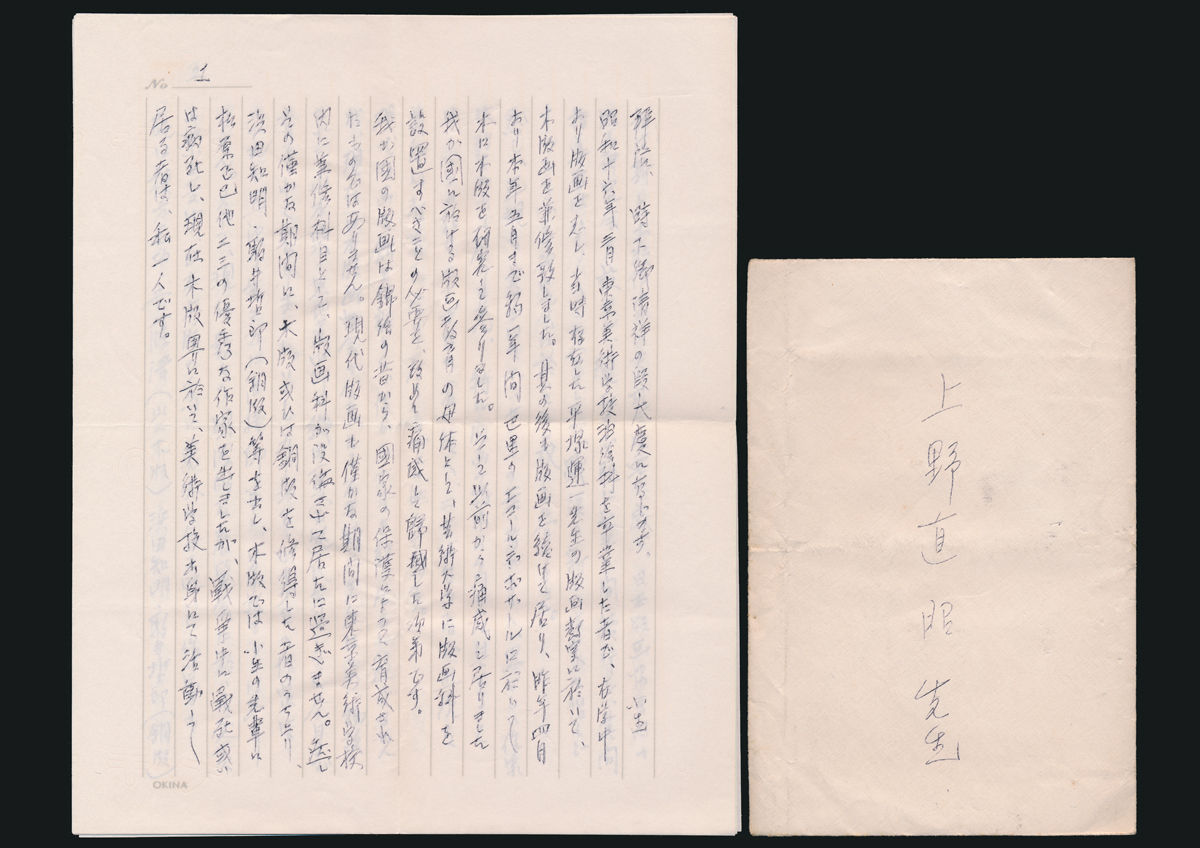 No 1
拝啓 時下御清祥の段大慶に存じます、小生
昭和十六年三月東京美術学校油絵科を卒業した者で、在学中
より版画を志し、当時存在した平塚運一先生の版画教室に於いて、
木版画を兼修致しました。其の後も版画を続けて居り、昨年四月
より本年五月まで約一年間巴里のエコールデボザールに於いて
木口木版を研究して参りました。そして以前から痛感して居りました
我が國に於ける版画教育の母体として、芸術大学に版画科を
設置すべきことの必要を、改めて痛感して帰國した次第です。
我が国の版画は錦絵の昔から、國家の保護によって育成され
たものではありません。現代版画も僅かな期間に東京美術学校
内に兼修科目として、版画科が設備されて居たに過ぎません。然し
その僅かな期間に、木版或ひは銅版を修得した者のうちより、
浜田知明・駒井哲郎（銅版）等を出し、木版では小生の先輩に
松原 他二三の優秀な作家を出しましたが、戦争中に戦死或い
は病死し、現在木版界に於いて、美術学校出身にて活動して
居る者は、私一人です。
OKINA
上野直昭先生